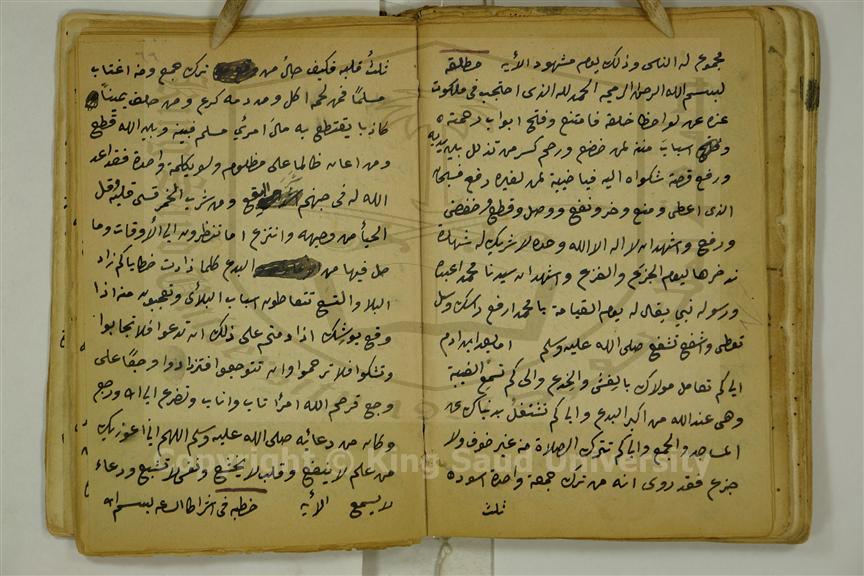 مجموع له الناس وذلك يوم مشهود الأية مطلقه
بسم الله الرحمن الرحيم الحمد لله الذى احتجب فى ملكوت
عزه عن لواحظ خلقه فامتنع وفتح ابواب رحمته
اسباب منته لمن خضع ورحم كسر من تذلل بين يديه
ورفع قصة شكواه اليه فيا خيبة لمن لغيره رفع فسبحان
الذى اعطى ومنع وضر ونفع ووصل وقطع وخفض
ورفع واشهد ان لا اله الا الله وحده لا شريك له شهادة
ندخرها ليوم الجزع والفزع واشهد ان سيدنا محمدا عبده
ورسوله نبي يقال له يوم القيامة يا محمد ارفع راسك وسل
تعطى واشفع تشفع صلى الله عليه وسلم اما بعد ابن ادم
الى كم تعامل مولاك بالغش والخدع والى كم تسمع الغيبة
وهى عند الله من اكبر البدع والى كم تشتغل بدنياك عن
المساجد والجمع والى كم تترك الصلاة من غير خوف ولا
جزع فقد روى انه من ترك جمعة واحدة اسوده
ثلث
ثلث قلبه فكيف حال من ترك جمع ومن اغتاب
مسلما فمن لحمه اكل ومن دمه كرع ومن حلف يمينا
كاذبا يقتطع به مال امرئ مسلم فبينه وبين الله قطع
ومن اعان ظالما على مظلوم ولو بكلمة واحدة فقد اعد
الله له فى جهنم ومن شرب الخمر قسى قلبه وقل
الحيا من وجهه وانتزع اما تنظرون الى الأوقات وما
حل فيها من البدع كلما زادت خطاياكم زاد
البلا والتسع تتعاطون اسباب البلائى وتعجبون منه اذا
وقع يوشك اذا دمتم على ذلك ان تدعوا فلا تجابوا
وتشكوا فلا ترحموا وان تتوجعوا فتزدادوا وجعا على
وجع فرحم الله امرأ تاب واناب وتضرع الى الله ورجع
وكان من دعائه صلى الله عليه وسلم اللهم انى اعوذ بك
من علم لا ينفع وقلب لا يخشع ونفس لا تشبع ودعاء
لا يسمع الأية خطبة فى اشراط الساعه بسم الله
Copyright © King Saud University